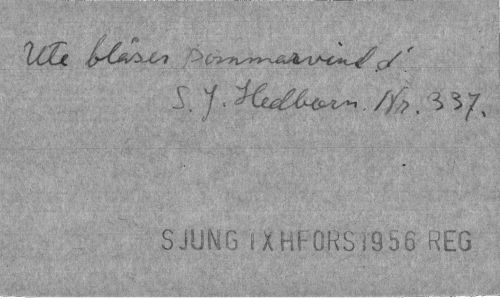 Ute blåser sommarvind
S. J. Hedborn. Nr. 337.
SJUNG IX HFORS 1956 REG